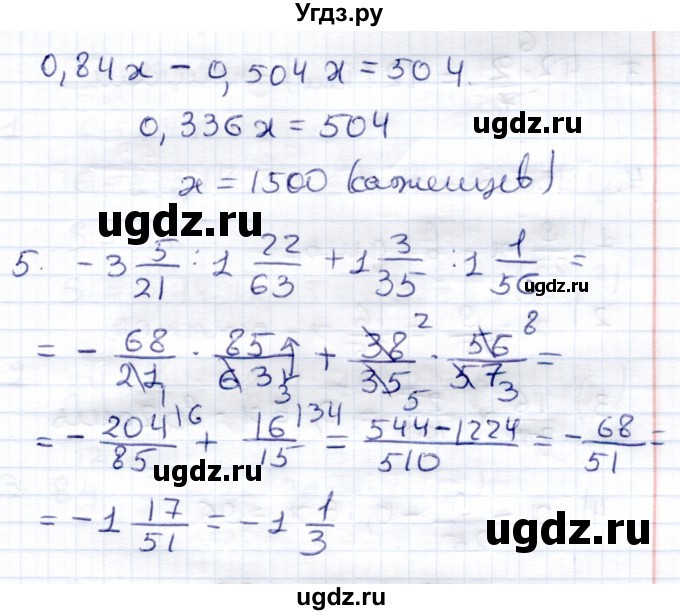 Угдз.ру
0,84x - 0,504x = 504.
0,336x = 504
ugdz.ru
x = 1500 (саженцев)
ugdz.ru
5. -3 5/21 : 1 22/63 + 1 3/35 : 1 1/56 =
ugdz.ru
= - 68/21 1 · 85/63 3 + 38 2/35 5 · 56 8/57 3 =
= - 204/85 6 + 16/15 34 = 544-1224/510 = - 68/51 =
ugdz.ru
= -1 17/51 = -1 1/3
ugdz.ru
ugdz.ru